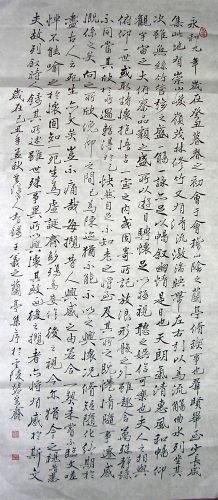 永和九年歲在癸丑暮春之初會于會稽山陰之蘭亭脩禊事也羣賢畢至少長咸
集此地有崇山峻領茂林脩竹又有清流激湍暎帶左右引以為流觴曲水列坐其
次雖無絲竹管弦之盛一觴一詠亦足以暢敘幽情是日也天朗氣清惠風和暢仰
觀宇宙之大俯察品類之盛所以遊目騁懷足以極視聽之娛信可樂也夫人之相與
俯仰一世或取諸懷抱悟言一室之內或因寄所託放浪形骸之外雖趣舍萬殊靜躁
不同當其欣於所遇暫得於己快然自足不知老之將至及其所之既惓情隨事遷感
慨係之矣向之所欣俛仰之間以為陳迹猶不能不以之興懷況脩短隨化終期於
盡古人云死生亦大矣豈不痛哉每攬昔人興感之由若合一契未嘗不臨文嗟
悼不能喻之於懷固知一死生為虛誕齊彭殤為妄作後之視今亦由今之視昔悲
夫故列敘時人錄其所述雖世殊事異所以興懷其致一也後之攬者亦將有感於斯文
歲在己丑年孟秋王羲之蘭亭集序於齋